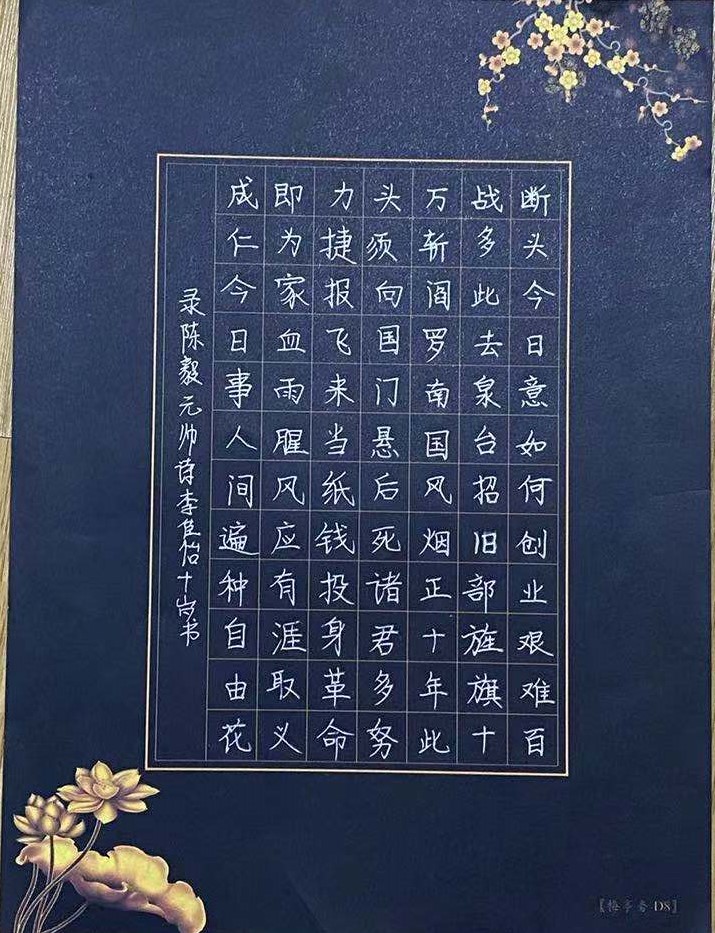 断头今日意如何创业艰难百
战多此去泉台招旧部旌旗十
万斩阎罗南国风烟正十年此
头须向国门悬后死诸君多努
力捷报飞来当纸钱投身革命
即为家血雨腥风应有涯取义
成仁今日事人间遍种自由花
录陈毅元帅诗李臣怡十岁书
D8